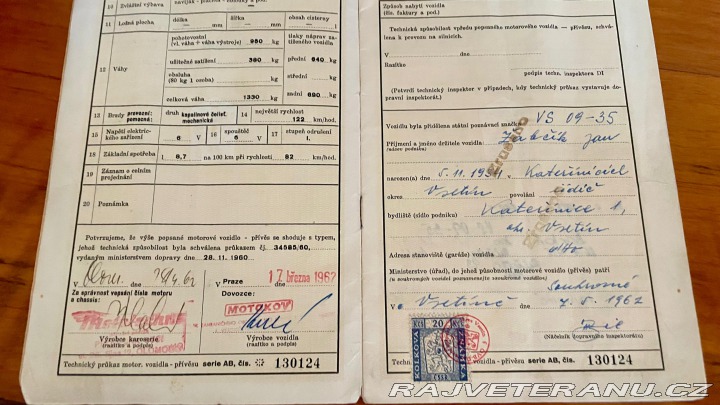 10 Zvláštní výbava
11 Ložná plocha délka — mm šířka — mm obsah cisterny — l
12 Váhy
pohotovostní (vl. váha + váha výstroje) 950 kg
tlaky náprav zatíženého vozidla
užitečné zatížení 380 kg přední 640 kg
obsluha (80 kg 1 osoba) kg střední kg
celková váha 1330 kg sadní 690 kg
13 Brzdy provozní: pomocná: kapalinové čelisť. mechanická 14 největší rychlost 122 km/hod.
15 Napětí elektrického zařízení 6 V 16 spouštěče 6 V 17 stupeň odrušení I.
18 Základní spotřeba l 8,7 na 100 km při rychlosti 82 km/hod.
19 Záznam o celním projednání
20 Poznámka
Potvrzujeme, že výše popsané motorové vozidlo - přívěs se shoduje s typem,
jehož technická způsobilost byla schválena průkazem čj. 34585/60,
vydaným ministerstvem dopravy dne 28. 11. 1960.
V Praze 17. března 1962
Za správnost vepsání čísla motoru a chassis:
Dovozce:
MOTOKOV
Výrobce karoserie (razítko a podpis)
Výrobce vozidla (razítko a podpis)
Technický průkaz motor. vozidla - přívěsu serie AB, čís. 130124
Způsob nabytí vozidla (čís. faktury a pod.)
Technická způsobilost vpředu popsaného motorového vozidla — přívěsu, schválena k provozu na silnicích.
V dne
Razítko
podpis techn. inspektora DI
(Potvrdí technický inspektor v případech, kdy technický průkaz vystavuje dopravní inspektorát.)
Vozidlu byla přidělena státní poznávací značka VS 09-35
Příjmení a jméno držitele vozidla (název podniku) Žabčík Jan
narozen(a) dne 5. 11. 1934
okres Vsetín povolání řidič
bydliště (sídlo podniku) Kateřinice 1,
okr. Vsetín
Adresa stanoviště (garáže) vozidla dtto
Ministerstvo (úřad), do jehož působnosti motorové vozidlo (přívěs) patří
(u soukromých vozidel poznamenejte soukromé vozidlo) Soukromé
V Vsetíně dne 7. 5. 1962
(Náčelník dopravního inspektorátu)
KOLKOVÁ
Kčs 20 Kčs
ČSSR
Technický průkaz motor. vozidla - přívěsu serie AB, čís. 130124
RAJVETERANU.CZ